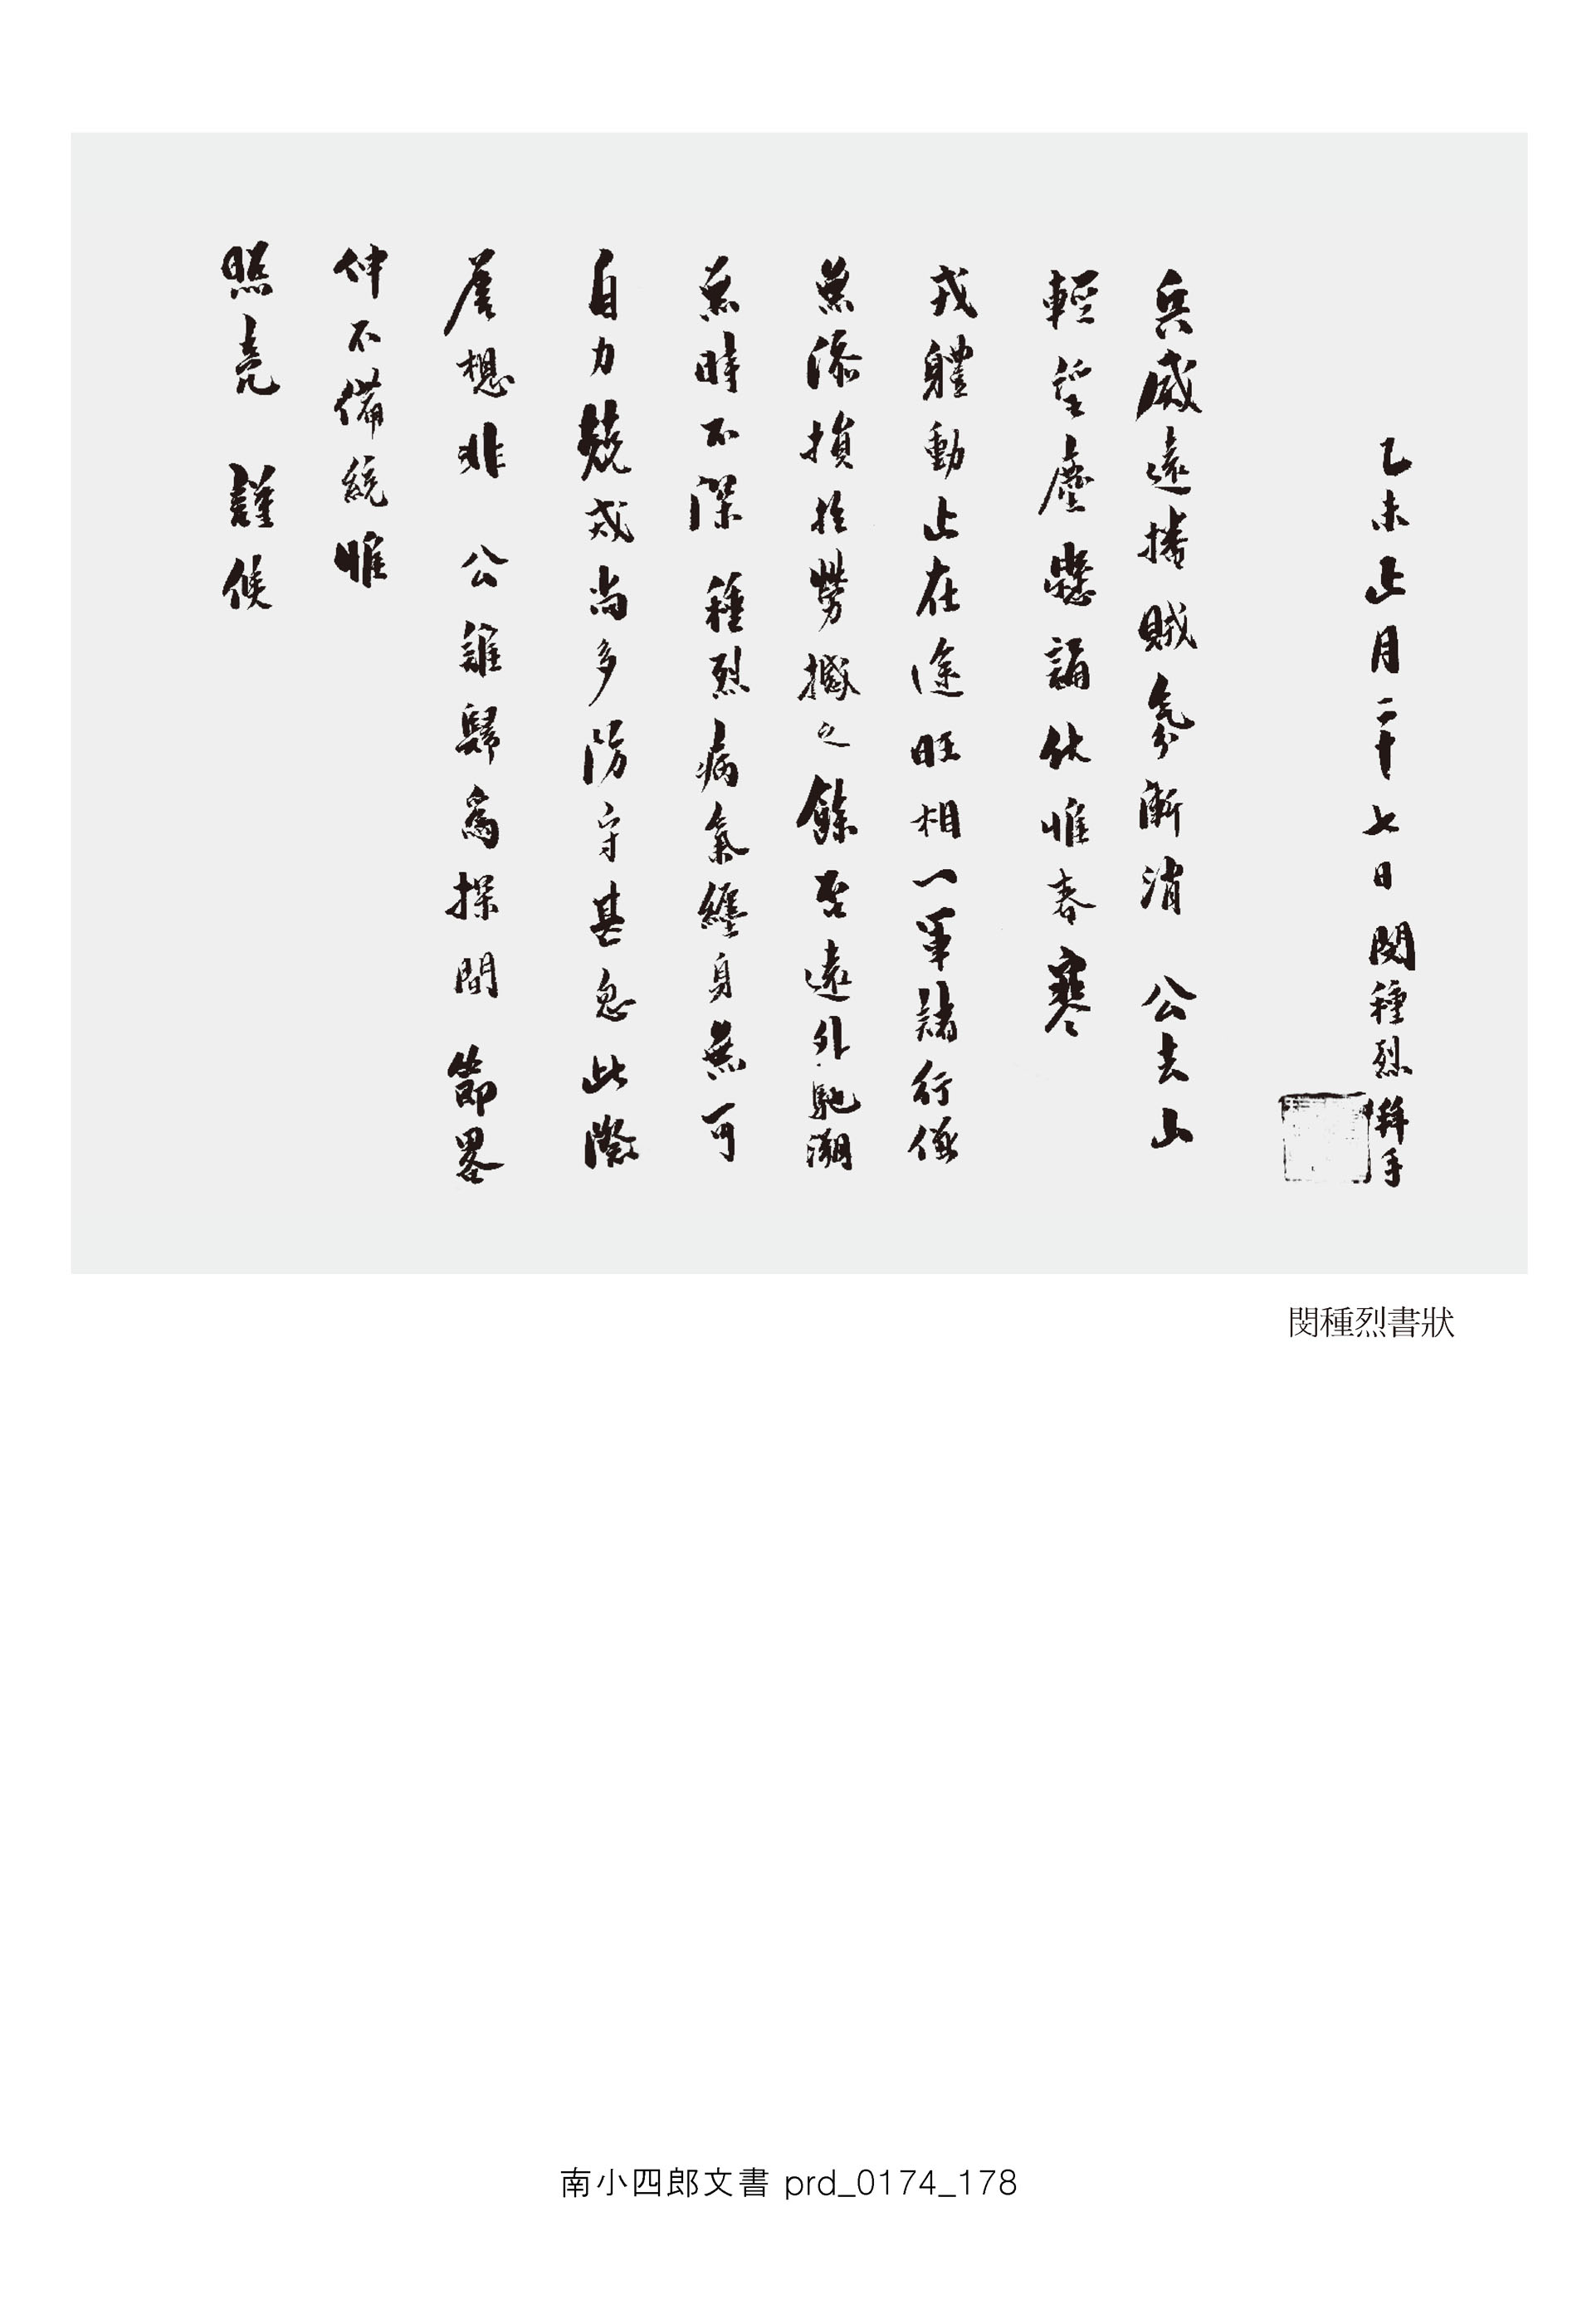 乙未正月二十七日閔種烈拜手
兵威遠播賊氛漸消 公去山
輕望塵懸誦伏惟春寒
戎軆動止在途旺相一軍諸行
無添損於勞撼之餘至遠外馳溯
無時不深 種烈病氣纏身無可
自力兢戒尚多防守甚忽此際
詹想非 公誰歸爲探問 節畧
伸不備統惟
照亮 謹候
閔種烈書狀
南小四郎文書 prd_0174_178